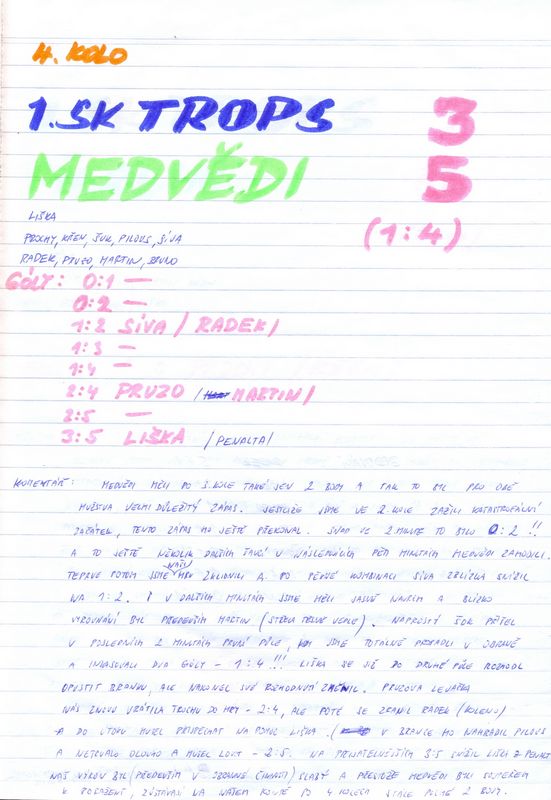 4. KOLO
1. SK TROPS 3
MEDVĚDI 5
LIŠKA
PROCHY, KŘEN, ŠUK, PILOUS, SÍVA (1:4)
RADEK, PRUZO, MARTIN, BRUNO
GÓLY: 0:1 —
0:2 —
1:2 SÍVA / RADEK /
1:3 —
1:4 —
2:4 PRUZO / MARTIN /
2:5 —
3:5 LIŠKA / PENALTA /
KOMENTÁŘ: MEDVĚDI MĚLI PO 3. KOLE TAKÉ JEN 2 BODY A TAK TO BYL PRO OBĚ
MUŽSTVA VELMI DŮLEŽITÝ ZÁPAS. JESTLIŽE JSME VE 2. KOLE ZAŽILI KATASTROFÁLNÍ
ZAČÁTEK, TENTO ZÁPAS HO JEŠTĚ PŘEKONAL. VE 2. MINUTĚ TO BYLO 0:2 !!
A TO JEŠTĚ NĚKOLIK DALŠÍCH ŠANCÍ V NÁSLEDUJÍCÍCH PĚTI MINUTÁCH MEDVĚDI ZAHODILI.
TEPRVE POTOM JSME HRU ZKLIDNILI A PO PĚKNÉ KOMBINACI SÍVA ZBLÍZKA SNÍŽIL
NA 1:2. I V DALŠÍCH MINUTÁCH JSME MĚLI JASNĚ NAVRCH A BLÍZKO
VYROVNÁNÍ BYL PŘEDEVŠÍM MARTIN (STŘELA TĚSNĚ VEDLE). NAPROSTÝ ŠOK PŘIŠEL
V POSLEDNÍCH 2 MINUTÁCH PRVNÍ PŮLE, JSME TOTÁLNĚ PROPADLI V OBRANĚ
A INKASOVALI DVA GÓLY - 1:4 !!! LIŠKA SE JIŽ DO DRUHÉ PŮLE ROZHODL
OPUSTIT BRANKU, ALE NAKONEC SVÉ ROZHODNUTÍ ZMĚNIL. PRUZOVA LEVAČKA
NÁS ZNOVU VRÁTILA TROCHU DO HRY - 2:4, ALE POTÉ SE ZRANIL RADEK (KOLENO)
A DO ÚTOKU MUSEL PŘISPĚCHAT NA POMOC LIŠKA. ( V BRANCE HO NAHRADIL PILOUS
A NETRVALO DLOUHO A MUSEL LOVIT - 2:5. NA PŘIJATELNĚJŠÍCH 3:5 SNÍŽIL LIŠKA Z PENALT
NÁŠ VÝKON BYL (PŘEDEVŠÍM V OBRANNÉ ČINNOSTI) SLABÝ A PŘESTOŽE MEDVĚDI BYLI SOUPEŘEM
K PORAŽENÍ, ZŮSTÁVAJÍ NA NAŠEM KONTĚ PO 4 KOLECH STÁLE POUHÉ 2 BODY.